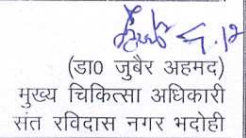 (डा0 जुबैर अहमद)
मुख्य चिकित्सा अधिकारी
संत रविदास नगर भदोही